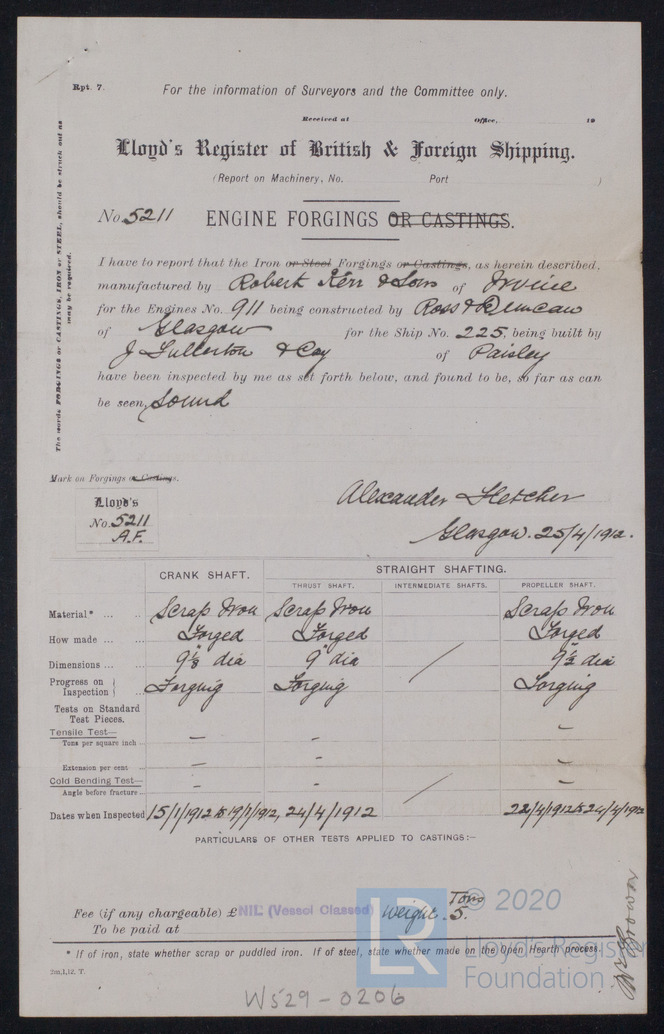 Rpt. 7.
For the information of Surveyors and the Committee only.
Received at Office, 19
Lloyd's Register of British & Foreign Shipping.
(Report on Machinery, No. Port )
No. 5211 ENGINE FORGINGS OR CASTINGS.
The words FORGINGS or CASTINGS, IRON or STEEL, should be struck out as may be required.
I have to report that the Iron or Steel Forgings or Castings, as herein described,
manufactured by Robert Kerr & Sons of Irvine
for the Engines No. 911 being constructed by Ross & Duncan
of Glasgow for the Ship No. 225, being built by
J Fullerton & Coy of Paisley
have been inspected by me as set forth below, and found to be, so far as can
be seen, Sound
Mark on Forgings or Castings.
Lloyd's
No. 5211
A.F.
Alexander Fletcher
Glasgow. 25/4/1912.
CRANK SHAFT. STRAIGHT SHAFTING.
THRUST SHAFT. INTERMEDIATE SHAFTS. PROPELLER SHAFT.
Material* ... ... Scrap Iron Scrap Iron Scrap Iron
How made ... ... Forged Forged Forged
Dimensions ... ... 9 1/8" dia 9" dia 9 1/2" dia
Progress on Inspection } ... Forging Forging Forging
Tests on Standard
Test Pieces.
Tensile Test— –
Tons per square inch ... – –
Extension per cent ... – – –
Cold Bending Test— –
Angle before fracture... – –
Dates when Inspected 15/1/1912 to 19/1/1912, 24/4/1912 22/4/1912 to 24/4/1912
PARTICULARS OF OTHER TESTS APPLIED TO CASTINGS:–
Fee (if any chargeable) £ NIL (Vessel Classed) Weight Tons 5.
To be paid at
* If of iron, state whether scrap or puddled iron. If of steel, state whether made on the Open Hearth process.
2m,1,12. T.
W529-0206
LR
© 2020
Lloyd's Register
Foundation